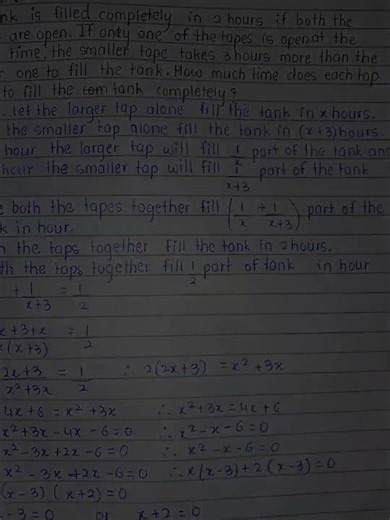 nk is filled completely in 2 hours if both the
are open. If only one of the tapes is open at the
time, the smaller tape takes 3 hours more than the
one to fill the tank. How much time does each tap
to fill the tank completely?
let the larger tap alone fill the tank in x hours.
the smaller tap alone fill the tank in (x+3) hours.
hour the larger tap will fill 1/x part of the tank and
hour the smaller tap will fill 1/x+3 part of the tank
e both the tapes together fill (1/x + 1/x+3) part of the
k in hour.
the taps together fill the tank in 2 hours.
th the taps together fill 1/2 part of tank in hour
+ 1/x+3 = 1/2
x+3+x/x(x+3) = 1/2
2x+3/x²+3x = 1/2 ∴ 2(2x+3) = x²+3x
4x+6 = x²+3x ∴ x²+3x = 4x+6
x²+3x-4x-6=0 ∴ x²-x-6=0
x²-3x+2x-6=0 ∴ x²-x-6=0
x²-3x+2x-6=0 ∴ x(x-3)+2(x-3)=0
(x-3)(x+2)=0
-3=0 or x+2=0